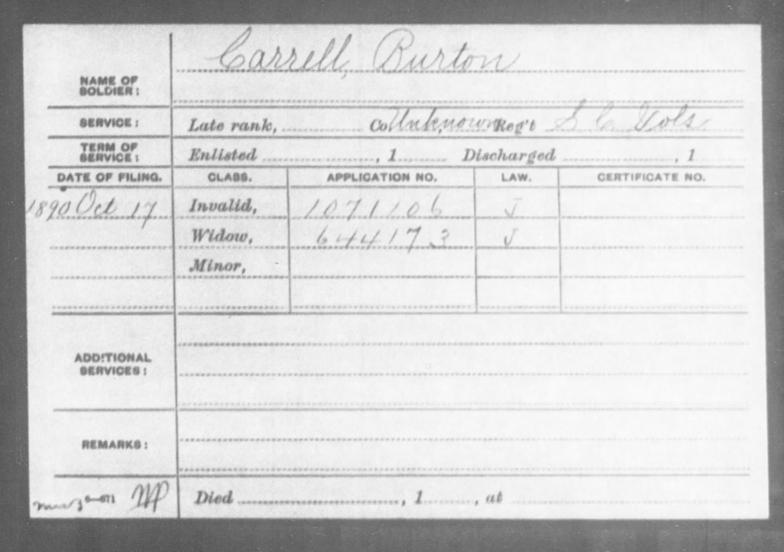 NAME OF SOLDIER: Carrell, Burton
SERVICE: Late rank, Co Unknown Reg't S C Vols
TERM OF SERVICE: Enlisted , 1 Discharged , 1
DATE OF FILING. CLASS. APPLICATION NO. LAW. CERTIFICATE NO.
1890 Oct 17 Invalid, 1071106 J
Widow, 644173 J
Minor,
ADDITIONAL SERVICES:
REMARKS:
6-671 Died , 1 , at